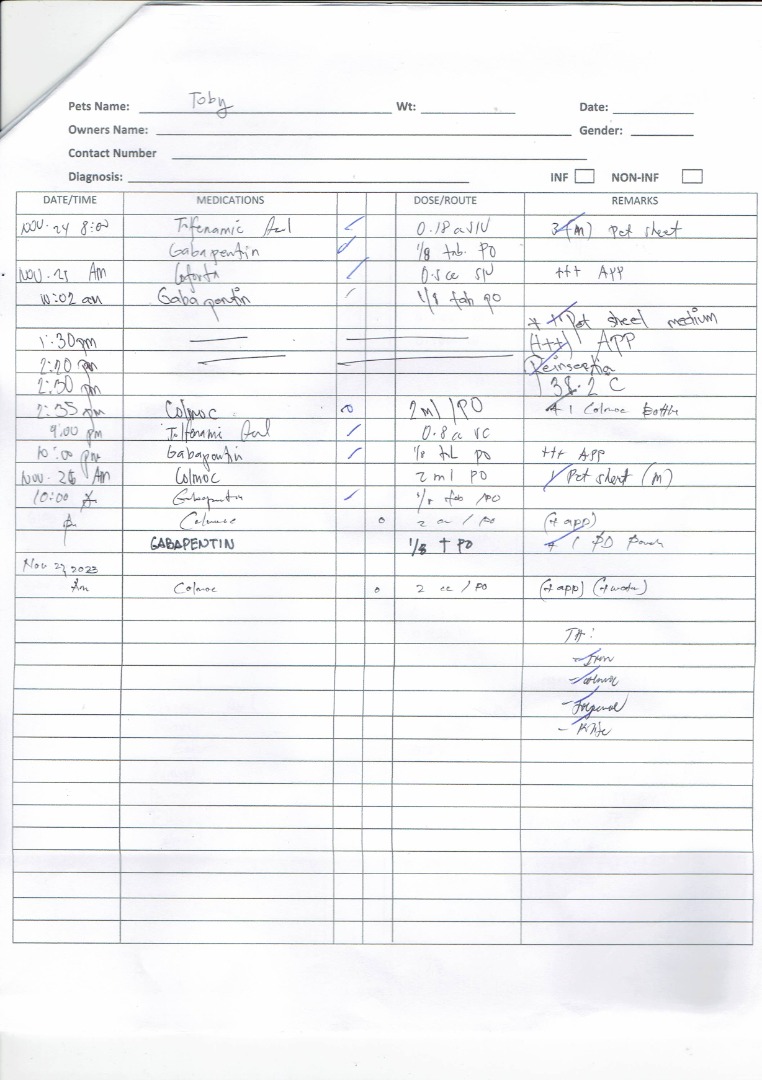 Pets Name: Toby Wt: Date:
Owners Name: Gender:
Contact Number
Diagnosis: INF NON-INF
DATE/TIME MEDICATIONS DOSE/ROUTE REMARKS
NOV. 24 8:00 0.18 3 (M) Pet sheet
Gabapentin 1/8 tab. PO
NOV. 25 Am 0.5 cc +++ APP
10:02 am Gabapentin 1/8 tab po
Pet sheet medium
1:30pm (+++) APP
2:20 pm Reinsertion
2:30 pm 38.2 C
2:35 pm Colmoc 2 ml /PO + 1 Colmoc Bottle
9:00 pm 0.8
10:00 pm Gabapentin 1/8 tab po +++ APP
NOV. 26 Am Colmoc 2 ml PO 1 Pet sheet (M)
10:00 Gabapentin 1/8 tab /PO
Colmoc 2 cc / PO (+ app)
GABAPENTIN 1/8 T PO + 1
Nov 27, 2023
Am Colmoc 2 cc / PO (+ app) (+ water)